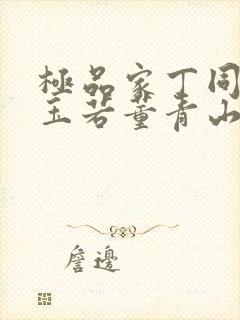 極品家丁同
玉若董青山
詹邊